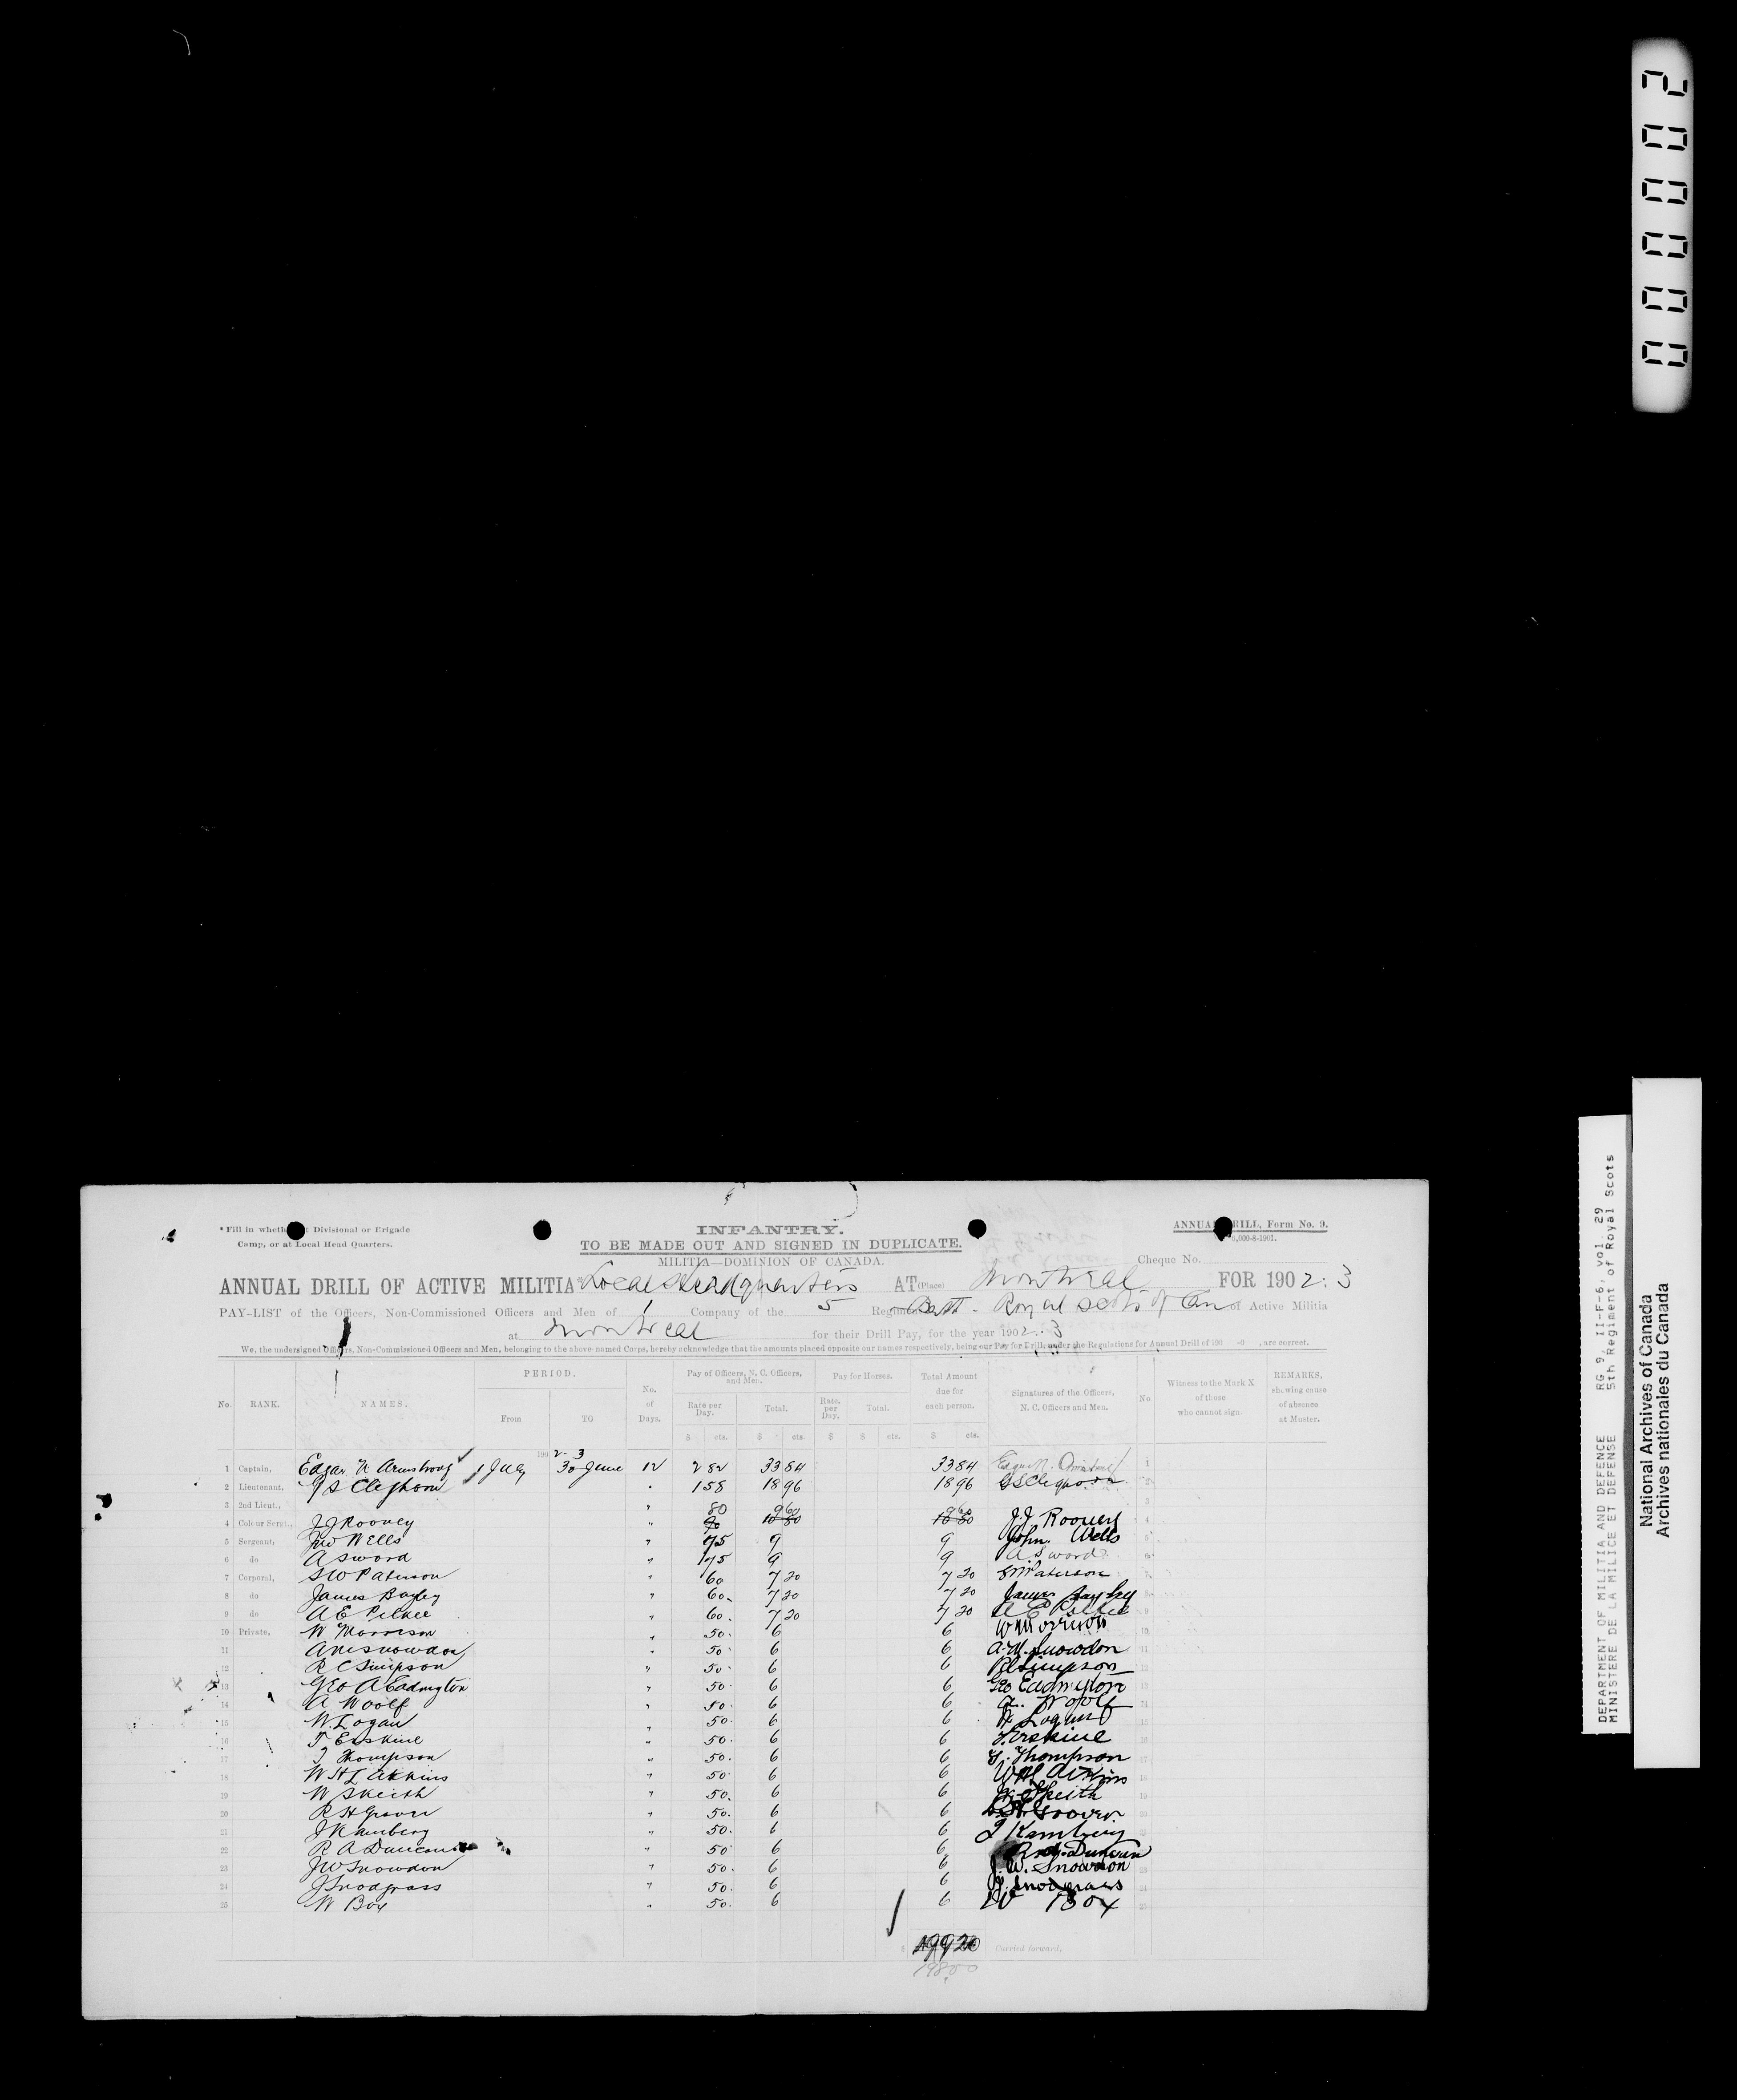 000002
* Fill in whether at Divisional or Brigade
Camp, or at Local Head Quarters.
INFANTRY.
TO BE MADE OUT AND SIGNED IN DUPLICATE.
MILITIA—DOMINION OF CANADA.
ANNUAL DRILL, Form No. 9.
Cheque No.
ANNUAL DRILL OF ACTIVE MILITIA Local Headquarters AT (Place) Montreal FOR 1902.3
PAY-LIST of the Officers, Non-Commissioned Officers and Men of 1 Company of the 5 Batt. Royal Scots of Can of Active Militia
at Montreal for their Drill Pay, for the year 1902.3
We, the undersigned Officers, Non-Commissioned Officers and Men, belonging to the above-named Corps, hereby acknowledge that the amounts placed opposite our names respectively, being our Pay for Drill, under the Regulations for Annual Drill of 190 -0 , are correct.
No. RANK. NAMES. PERIOD. From TO No. of Days. Pay of Officers, N. C. Officers, and Men. Rate per Day. Total. Pay for Horses. Rate per Day. Total. Total Amount due for each person. Signatures of the Officers, N. C. Officers and Men. No. Witness to the Mark X of those who cannot sign. REMARKS, showing cause of absence at Muster.
$ cts. $ cts. $ $ cts. $ cts.
190 2-3
1 Captain, Edgar N Armstrong 1 July 30 June 12 2 82 33 84 33 84 1
2 Lieutenant, G S Cleghorn " 1 58 18 96 18 96 G S Cleghorn 2
3 2nd Lieut., " 3
4 Colour Sergt., J J Rooney " 80 90 9 60 10 80 9 60 10 80 J. J. Rooney 4
5 Sergeant, Jno Wells " 75 9 9 John Wells 5
6 do A Sword " 75 9 9 A Sword 6
7 Corporal, S W Paterson " 60 7 20 7 20 S W Paterson 7
8 do James Bayley " 60 7 20 7 20 James Bayley 8
9 do A E Pelkee " 60 7 20 7 20 9
10 Private, W Morrison " 50 6 6 W Morrison 10
11 A M Snowdon " 50 6 6 A. M. Snowdon 11
12 R C Simpson " 50 6 6 R C Simpson 12
13 Geo A Eadington " 50 6 6 Geo Eadington 13
14 A Woolf " 50 6 6 A. Woolf 14
15 W. Logan " 50 6 6 W Logan 15
16 T Erskine " 50 6 6 T. Erskine 16
17 T Thompson " 50 6 6 T. Thompson 17
18 W H L Atkins " 50 6 6 W H L Atkins 18
19 W S Keith " 50 6 6 W S Keith 19
20 R H Groover " 50 6 6 R H Groover 20
21 J Kamberg " 50 6 6 J Kamberg 21
22 R A Duncan " 50 6 6 R. A. Duncan 22
23 J W Snowdon " 50 6 6 J. W. Snowdon 23
24 J Snodgrass " 50 6 6 J. Snodgrass 24
25 W Box " 50 6 6 W Box 25
$ 199 20 Carried forward,
198 00
DEPARTMENT OF MILITIA AND DEFENCE RG 9, II-F-6, vol. 29
MINISTERE DE LA MILICE ET DEFENSE 5th Regiment of Royal Scots
National Archives of Canada
Archives nationales du Canada